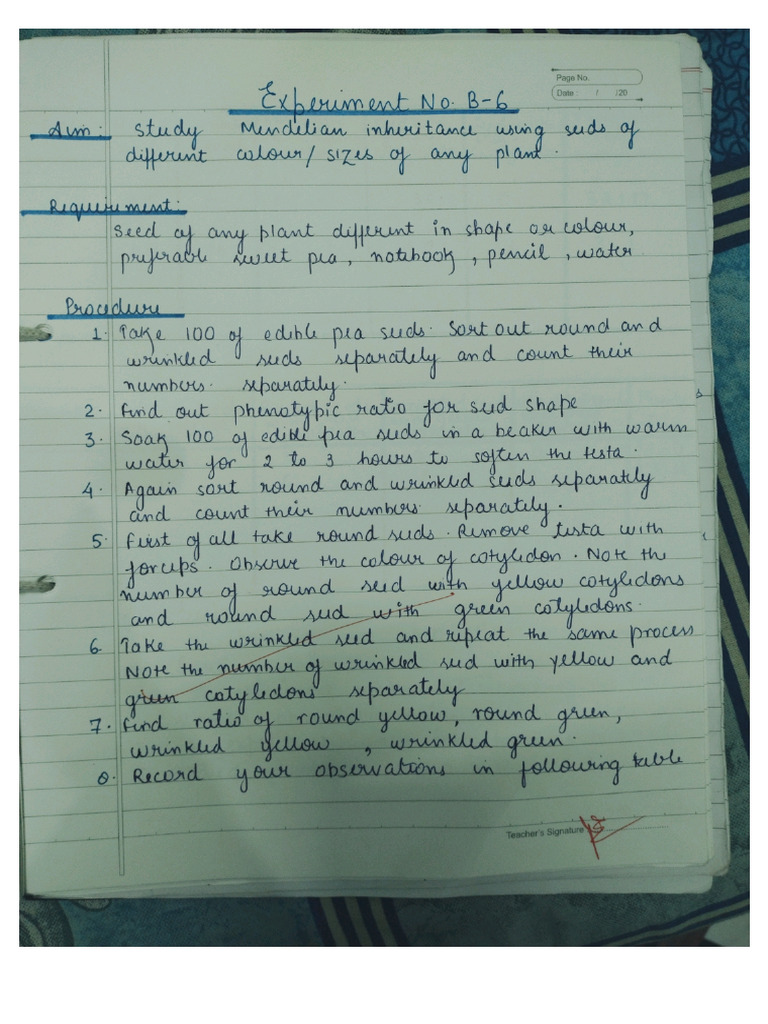 Page No.
Date : / /20
Experiment No. B-6
Aim: Study Mendelian inheritance using seeds of
different colour/ sizes of any plant.
Requirement:
Seed of any plant different in shape or colour,
preferable sweet pea, notebook, pencil, water
Procedure
1. Take 100 of edible pea seeds. Sort out round and
wrinkled seeds separately and count their
numbers separately.
2. Find out phenotypic ratio for seed shape
3. Soak 100 of edible pea seeds in a beaker with warm
water for 2 to 3 hours to soften the testa.
4. Again sort round and wrinkled seeds separately
and count their numbers separately.
5. First of all take round seeds. Remove testa with
forceps. Observe the colour of cotyledon. Note the
number of round seed with yellow cotyledons
and round seed with green cotyledons.
6. Take the wrinkled seed and repeat the same process
Note the number of wrinkled seed with yellow and
green cotyledons separately
7. Find ratio of round yellow, round green,
wrinkled yellow, wrinkled green.
8. Record your observations in following table
Teacher's Signature